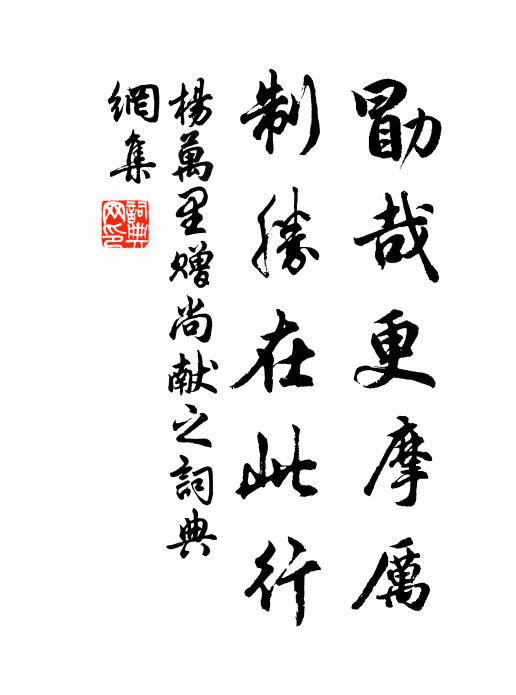 勖哉更摩厲
制勝在此行
楊萬里赠尚献之詞典
網集
詞典網印